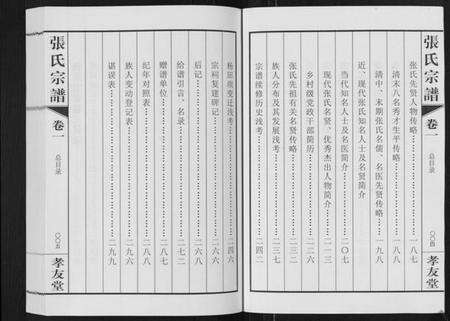 張氏宗譜
卷一
总目录
〇〇四
孝友堂
张氏先贤人物传略……一八七
清末八名秀才生平传略……一八八
清中、末期张氏名儒、名医先贤传略……一九八
近、现代张氏知名人士及名贤简介
当代知名人士及名医简介……二〇七
现代张氏名贤、优秀杰出人物简介……二一三
乡村级党政干部简历……二三一
张氏先祖有关名贤传略……二三二
族人分布及其发展浅考……二三七
宗谱续修历史浅考……二四二
杨思庙变迁浅考……二四六
宗祠复建碑记……二六六
后记……
给谱引言、名录……二七二
赠谱单位……二八七
纪年对照表……二八八
族人变动登记表……二九六
谌误表……二九九
張氏宗譜
卷一
总目录
〇〇五
孝友堂